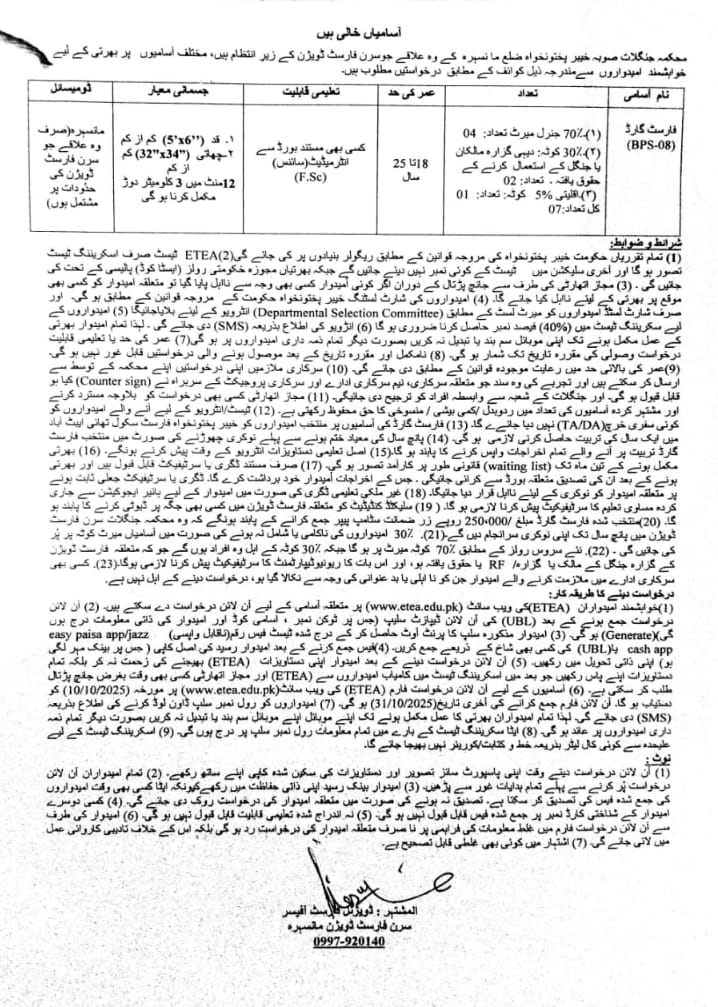 آسامیاں خالی ہیں
محکمہ جنگلات صوبہ خیبر پختونخواہ ضلع مانسہرہ کے وہ علاقے جو سرن فارسٹ ڈویژن کے زیر انتظام ہیں، مختلف آسامیوں پر بھرتی کے لیے
خواہشمند امیدواروں سے مندرجہ ذیل کوائف کے مطابق درخواستیں مطلوب ہیں۔
نام اسامی
تعداد
عمر کی حد
تعلیمی قابلیت
جسمانی معیار
ڈومیسائل
فارسٹ گارڈ
(BPS-08)
(۱)۔70٪ جنرل میرٹ تعداد: 04
(۲)۔30٪ کوٹہ: دیہی گزارہ مالکان
یا جنگل کے استعمال کرنے کے
حقوق یافتہ ۔ تعداد: 02
(۳)۔اقلیتی 5% کوٹہ: تعداد: 01
کل تعداد:07
18 تا 25
سال
کسی بھی مستند بورڈ سے
انٹرمیڈیٹ(سائنس)
(F.Sc)
۱۔ قد (5'x6'') کم از کم
۲۔چھاتی (32"x34") کم
از کم
12منٹ میں 3 کلومیٹر دوڑ
مکمل کرنا ہو گی
مانسہرہ(صرف
وہ علاقے جو
سرن فارسٹ
ڈویژن کی
حدودات پر
مشتمل ہوں)
شرائط و ضوابط:
(1) تمام تقرریاں حکومت خیبر پختونخواہ کی مروجہ قوانین کے مطابق ریگولر بنیادوں پر کی جائے گی(2)ETEA ٹیسٹ صرف اسکریننگ ٹیسٹ
تصور ہو گا اور آخری سلیکشن میں ٹیسٹ کے کوئی نمبر نہیں دیئے جائیں گے جبکہ بھرتیاں مجوزہ حکومتی رولز (ایسٹا کوڈ) پالیسی کے تحت کی
جائیں گی ۔ (3) مجاز اتھارٹی کی طرف سے جانچ پڑتال کے دوران اگر کوئی امیدوار کسی بھی وجہ سے نااہل پایا گیا تو متعلقہ امیدوار کو کسی بھی
موقع پر بھرتی کے لیئے نااہل کیا جائے گا۔ (4) امیدواروں کی شارٹ لسٹنگ خیبر پختونخواہ حکومت کے مروجہ قوانین کے مطابق ہوگی۔ اور
صرف شارٹ لسٹڈ امیدواروں کو میرٹ لسٹ کے مطابق (Departmental Selection Committee) انٹرویو کے لیئے بلایاجائیگا (5) امیدواروں کے
لیے سکریننگ ٹیسٹ میں (40%) فیصد نمبر حاصل کرنا ضروری ہو گا (6) انٹرویو کی اطلاع بذریعہ (SMS) دی جائے گی ۔ لہذا تمام امیدوار بھرتی
کے عمل مکمل ہونے تک اپنی موبائل سم بند یا تبدیل نہ کریں بصورت دیگر تمام ذمہ داری امیدواروں پر ہو گی(7) عمر کی حد یا تعلیمی قابلیت
درخواست وصولی کی مقررہ تاریخ تک شمار ہو گی۔ (8) نامکمل اور مقررہ تاریخ کے بعد موصول ہونے والی درخواستیں قابل غور نہیں ہو گی۔
(9)عمر کی بالائی حد میں رعایت موجودہ قوانین کے مطابق دی جائے گی۔ (10) سرکاری ملازمین اپنی درخواستیں اپنے محکمہ کے توسط سے
ارسال کر سکتے ہیں اور تجربے کی وہ سند جو متعلقہ سرکاری، نیم سرکاری ادارے اور سرکاری پروجیکٹ کے سربراہ نے (Counter sign) کیا ہو
قابل قبول ہو گی۔ اور جنگلات کے شعبہ سے وابسطہ افراد کو ترجیح دی جائیگی۔ (11) مجاز اتھارٹی کسی بھی درخواست کو بلاوجہ مسترد کرنے
اور مشتہر کردہ اسامیوں کی تعداد میں ردوبدل /کمی بیشی / منسوخی کا حق محفوظ رکھتی ہے۔ (12) ٹیسٹ/انٹرویو کے لیے آنے والے امیدواروں کو
کوئی سفری خرچ(TA/DA) نہیں دیا جائے گا۔ (13) فارسٹ گارڈ کی آسامیوں پر منتخب امیدواروں کو خیبر پختونخواہ فارسٹ سکول تھائی ایبٹ آباد
میں ایک سال کی تربیت حاصل کرنی لازمی ہو گی۔ (14) پانچ سال کی معیاد ختم ہونے سے پہلے نوکری چھوڑنے کی صورت میں منتخب فارسٹ
گارڈ تربیت پر آنے والے تمام اخراجات واپس کرنے کا پابند ہو گا۔(15) اصل تعلیمی دستاویزات انٹرویو کے وقت پیش کرنے ہونگے۔ (16) بھرتی
مکمل ہونے کے تین ماہ تک (waiting list) قانونی طور پر کارآمد تصور ہو گی۔ (17) صرف مستند ڈگری یا سرٹیفیکٹ قابل قبول ہیں اور بھرتی
ہونے کے بعد ان کی تصدیق متعلقہ بورڈ سے کرائی جائیگی ۔ جس کے اخراجات امیدوار خود برداشت کرے گا۔ ڈگری یا سرٹیفیکٹ جعلی ثابت ہونے
پر متعلقہ امیدوار کو نوکری کے لیئے نااہل قرار دیا جائیگا۔ (18) غیر ملکی تعلیمی ڈگری کی صورت میں امیدوار کے لیے ہائیر ایجوکیشن سے جاری
کردہ مساوی تعلیم کا سرٹیفکیٹ پیش کرنا لازمی ہو گا۔ (19) سلیکٹڈ کنڈیڈیٹ کو متعلقہ فارسٹ ڈویژن میں کسی بھی جگہ پر ڈیوٹی کرنے کا پابند ہو
گا۔ (20)منتخب شدہ فارسٹ گارڈ مبلغ /250،000 روپے زر ضمانت سٹامپ پیپر جمع کرانے کے پابند ہونگے کہ وہ محکمہ جنگلات سرن فارسٹ
ڈویژن میں پانچ سال تک اپنی نوکری سرانجام دیں گے۔(21). 30٪ امیدواروں کی ناکامی یا شامل نہ ہونے کی صورت میں آسامیاں میرٹ کوٹہ پر پُر
کی جائیں گی ۔ (22). نئے سروس رولز کے مطابق 70٪ کوٹہ میرٹ پر ہو گا جبکہ 30٪ کوٹہ کے اہل وہ افراد ہوں گے جو کہ متعلقہ فارسٹ ڈویژن
کے گزارہ جنگل کے مالک یا گزارہ/ RF یا حقوق یافتہ ہو، اور اس بات کا ریونیوڈیپارٹمنٹ کا سرٹیفکیٹ پیش کرنا لازمی ہوگا۔(23). کسی بھی
سرکاری ادارے میں ملازمت کرنے والے امیدوار جن کو نا اہلی یا بد عنوانی کی وجہ سے نکالا گیا ہو، درخواست دینے کے اہل نہیں ہے۔
درخواست دینے کا طریقہ کار:
(1)خواہشمند امیدواران (ETEA)کی ویب سائٹ (www.etea.edu.pk) پر متعلقہ آسامی کے لیے آن لائن درخواست دے سکتے ہیں۔ (2) آن لائن
درخواست جمع ہونے کے بعد (UBL) کی آن لائن ڈیپازٹ سلیپ (جس پر ٹوکن نمبر ، اسامی کوڈ اور امیدوار کی ذاتی معلومات درج ہوں
گی)(Generate) ہو گی۔ (3) امیدوار مذکورہ سلپ کا پرنٹ آوٹ حاصل کر کے درج شدہ ٹیسٹ فیس رقم(ناقابل واپسی) easy paisa app/jazz
cash app یا(UBL) کی کسی بھی شاخ کے ذریعے جمع کریں۔ (4)فیس جمع کرنے کے بعد امیدوار رسید کی اصل کاپی ( جس پر بینک مہر لگی
ہو) اپنی ذاتی تحویل میں رکھیں۔ (5) آن لائن درخواست دینے کے بعد امیدوار اپنی دستاویزات (ETEA) بھیجنے کی زحمت نہ کر بلکہ تمام
دستاویزات اپنے پاس رکھیں جو بعد میں اسکریننگ ٹیسٹ میں کامیاب امیدواروں سے (ETEA) اور مجاز اتھارٹی کسی بھی وقت بغرض جانچ پڑتال
طلب کر سکتی ہے۔ (6) آسامیوں کے لیے آن لائن درخواست فارم (ETEA) کی ویب سائٹ(www.etea.edu.pk) پر مورخہ (10/10/2025) کو
دستیاب ہو گا۔ آن لائن فارم جمع کرانے کی آخری تاریخ(31/10/2025) ہو گی۔ (7) امیدواروں کو رول نمبر سلپ ڈاون لوڈ کرنے کی اطلاع بذریعہ
(SMS) دی جائے گی۔ لہذا تمام امیدواران بھرتی کا عمل مکمل ہونے تک اپنے موبائل اپنے موبائل سم بند یا تبدیل نہ کریں بصورت دیگر تمام ذمہ
داری امیدواروں پر عائد ہو گی۔ (8) ایٹا سکریننگ ٹیسٹ کے بارے میں تمام معلومات رول نمبر سلپ پر درج ہوں گی۔ (9) اسکریننگ ٹیسٹ کے لیے
علیحدہ سے کوئی کال لیٹر بذریعہ خط و کتابت/کوریئر نہیں بھیجا جائے گا۔
نوٹ :
(1) آن لائن درخواست دیتے وقت اپنی پاسپورٹ سائز تصویر اور دستاویزات کی سکین شدہ کاپی اپنے ساتھ رکھے۔ (2) تمام امیدواران آن لائن
درخواست پُر کرنے سے پہلے تمام ہدایات غور سے پڑھیں۔ (3) امیدوار بینک رسید اپنی ذاتی حفاظت میں رکھے کیونکہ ایٹا کسی بھی وقت امیدواروں
کی جمع شدہ فیس کی تصدیق کر سکتا ہے۔ تصدیق نہ ہونے کی صورت میں متعلقہ امیدوار کی درخواست روک دی جائے گی۔ (4) کسی دوسرے
امیدوار کے شناختی کارڈ نمبر پر جمع شدہ فیس قابل قبول نہیں ہو گی۔ (5) نہ اندراج شدہ تعلیمی قابلیت قابل قبول نہیں ہو گی۔ (6) امیدوار کی طرف
سے آن لائن درخواست فارم میں غلط معلومات کی فراہمی پر نا صرف متعلقہ امیدوار کی درخواست رد ہو گی بلکہ اس کے خلاف تادیبی کاروائی عمل
میں لائی جائے گی۔ (7) اشتہار میں کوئی بھی غلطی قابل تصحیح ہے۔
المشتہر : ڈویژنل فارسٹ آفیسر
سرن فارسٹ ڈویژن مانسہرہ
0997-920140